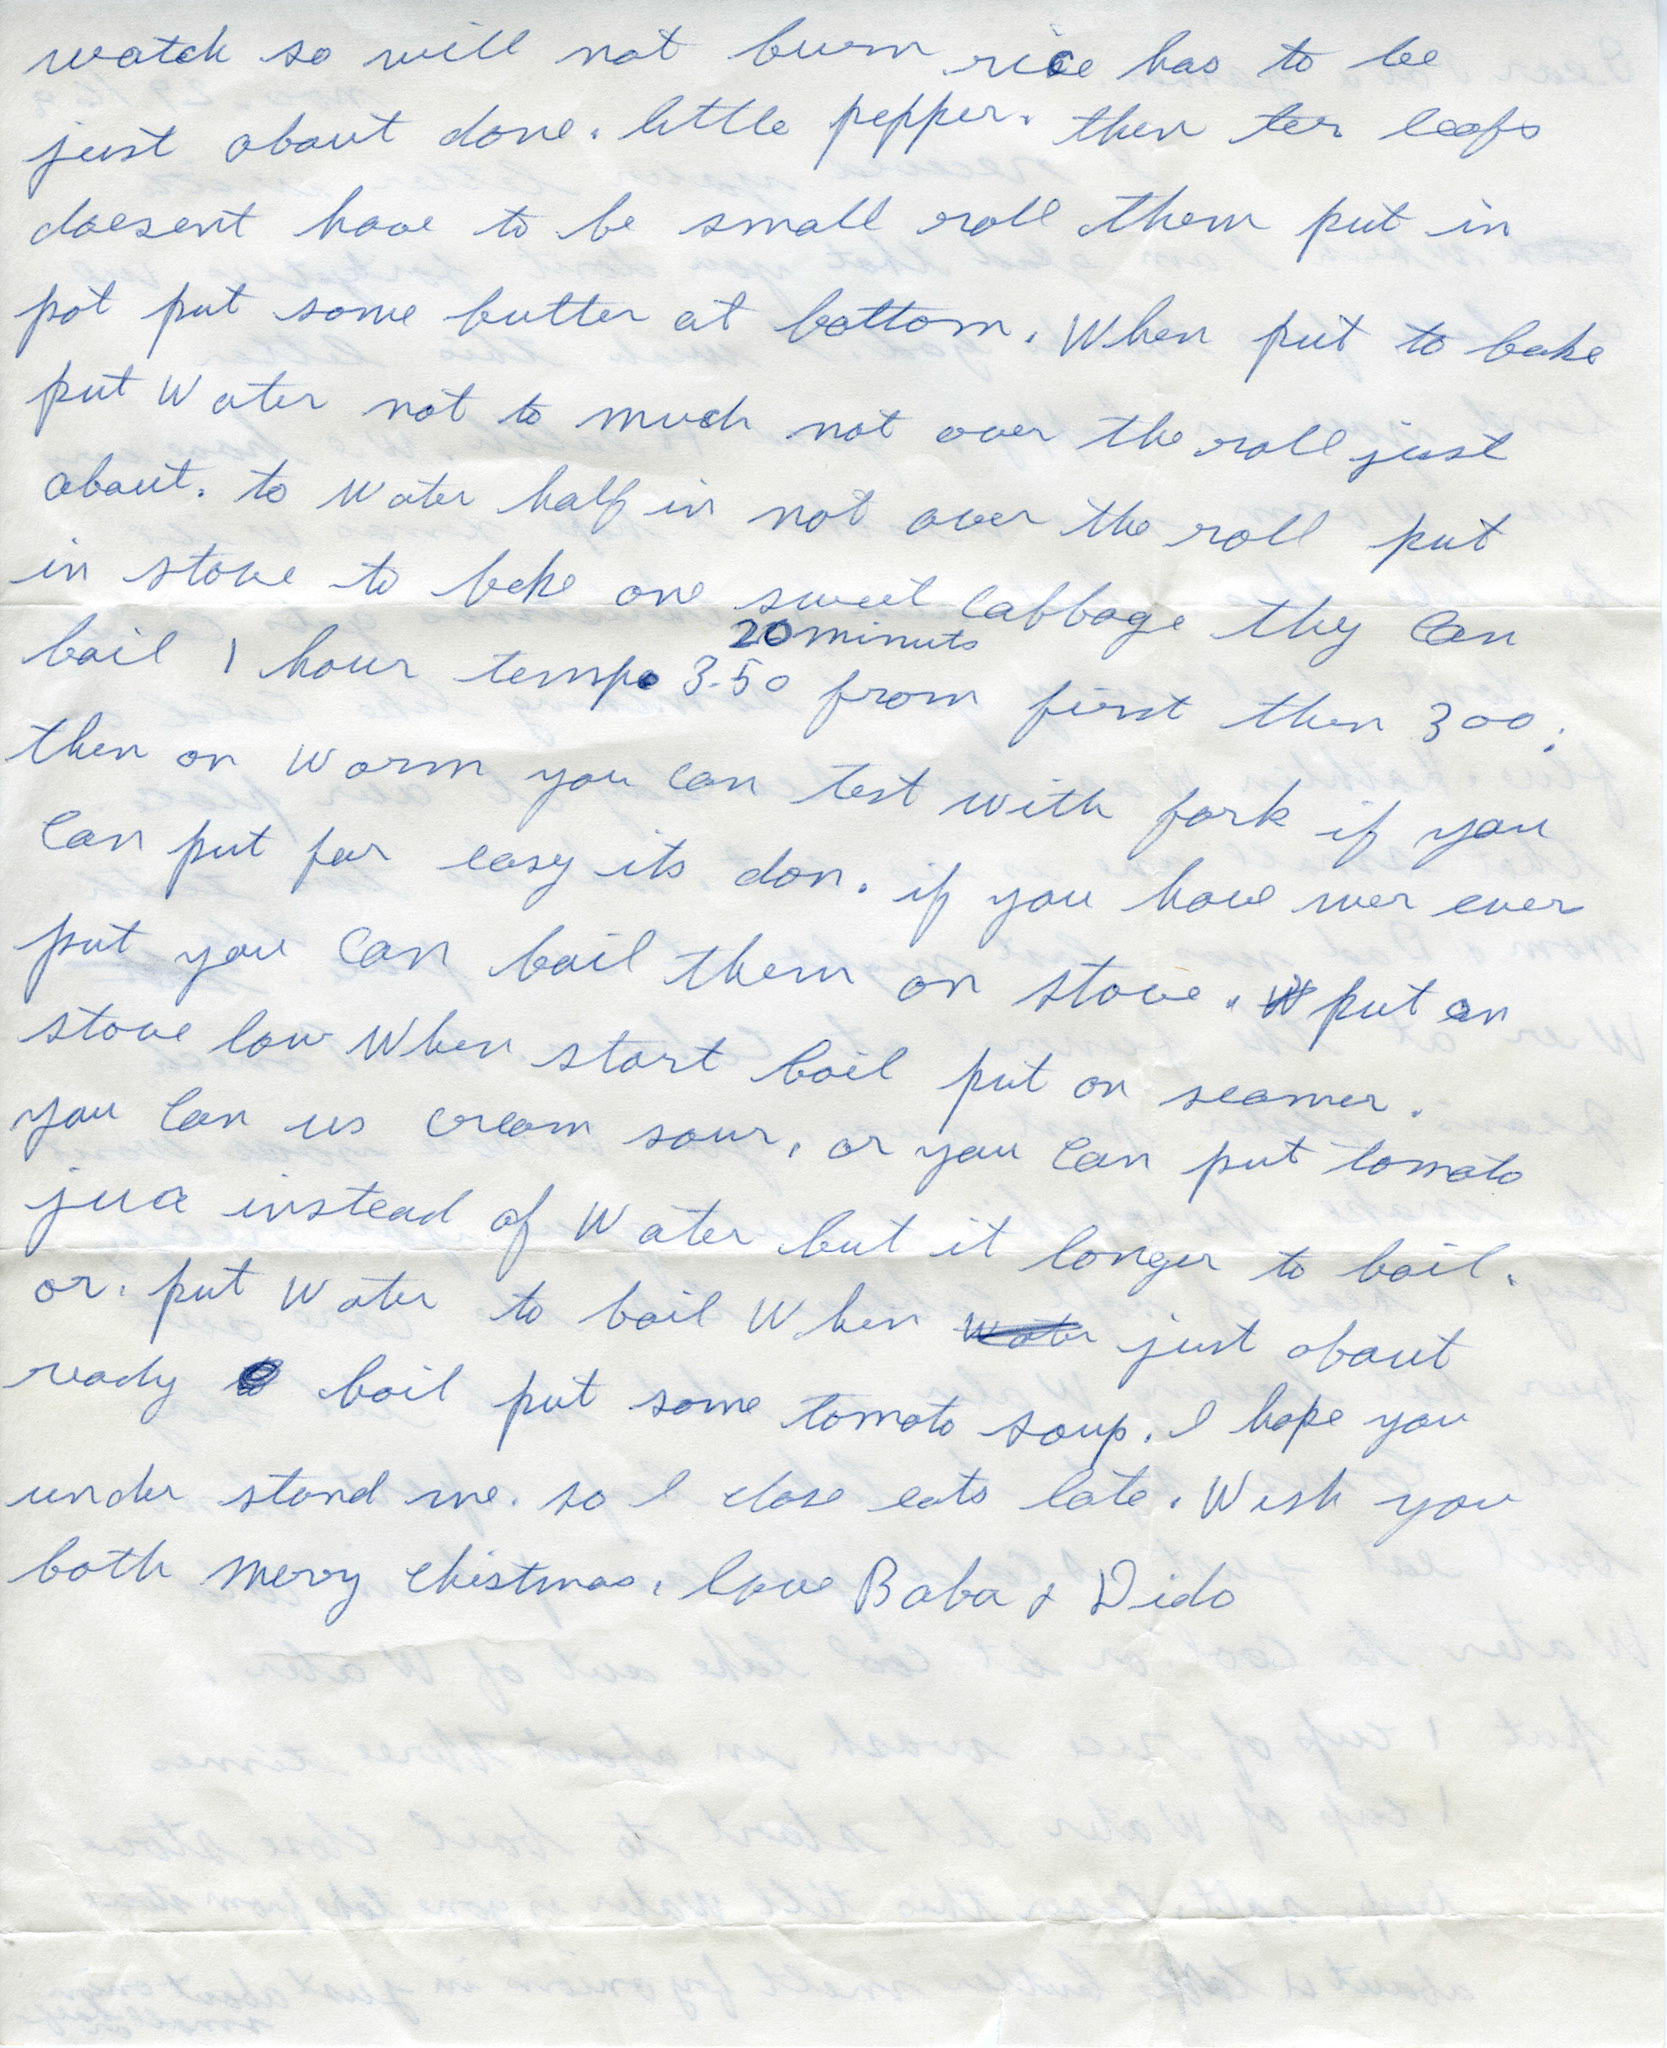 watch so will not burn rice has to be
just about done. little pepper. then ter leafs
doesent have to be small roll them put in
pot put some butter at bottom. When put to bake
put Water not to much not over the roll just
about. to Water half in not over the roll put
in stove to bake one sweet Cabbage they Can
20 minuts
boil 1 hour temp. 3.50 from first then 300.
then on Worm you Can test with fork if you
Can put far easy its don. if you have over
put you Can boil them on stove. put on
stove low When start boil put on seamer.
you Can us cream sour, or you Can put tomato
juce instead of Water but it longer to boil.
or. put Water to boil When just about
ready boil put some tomato soup. I hope you
under stand me. so I close eats late. Wish you
both Merry Chistmas. love Baba & Dido